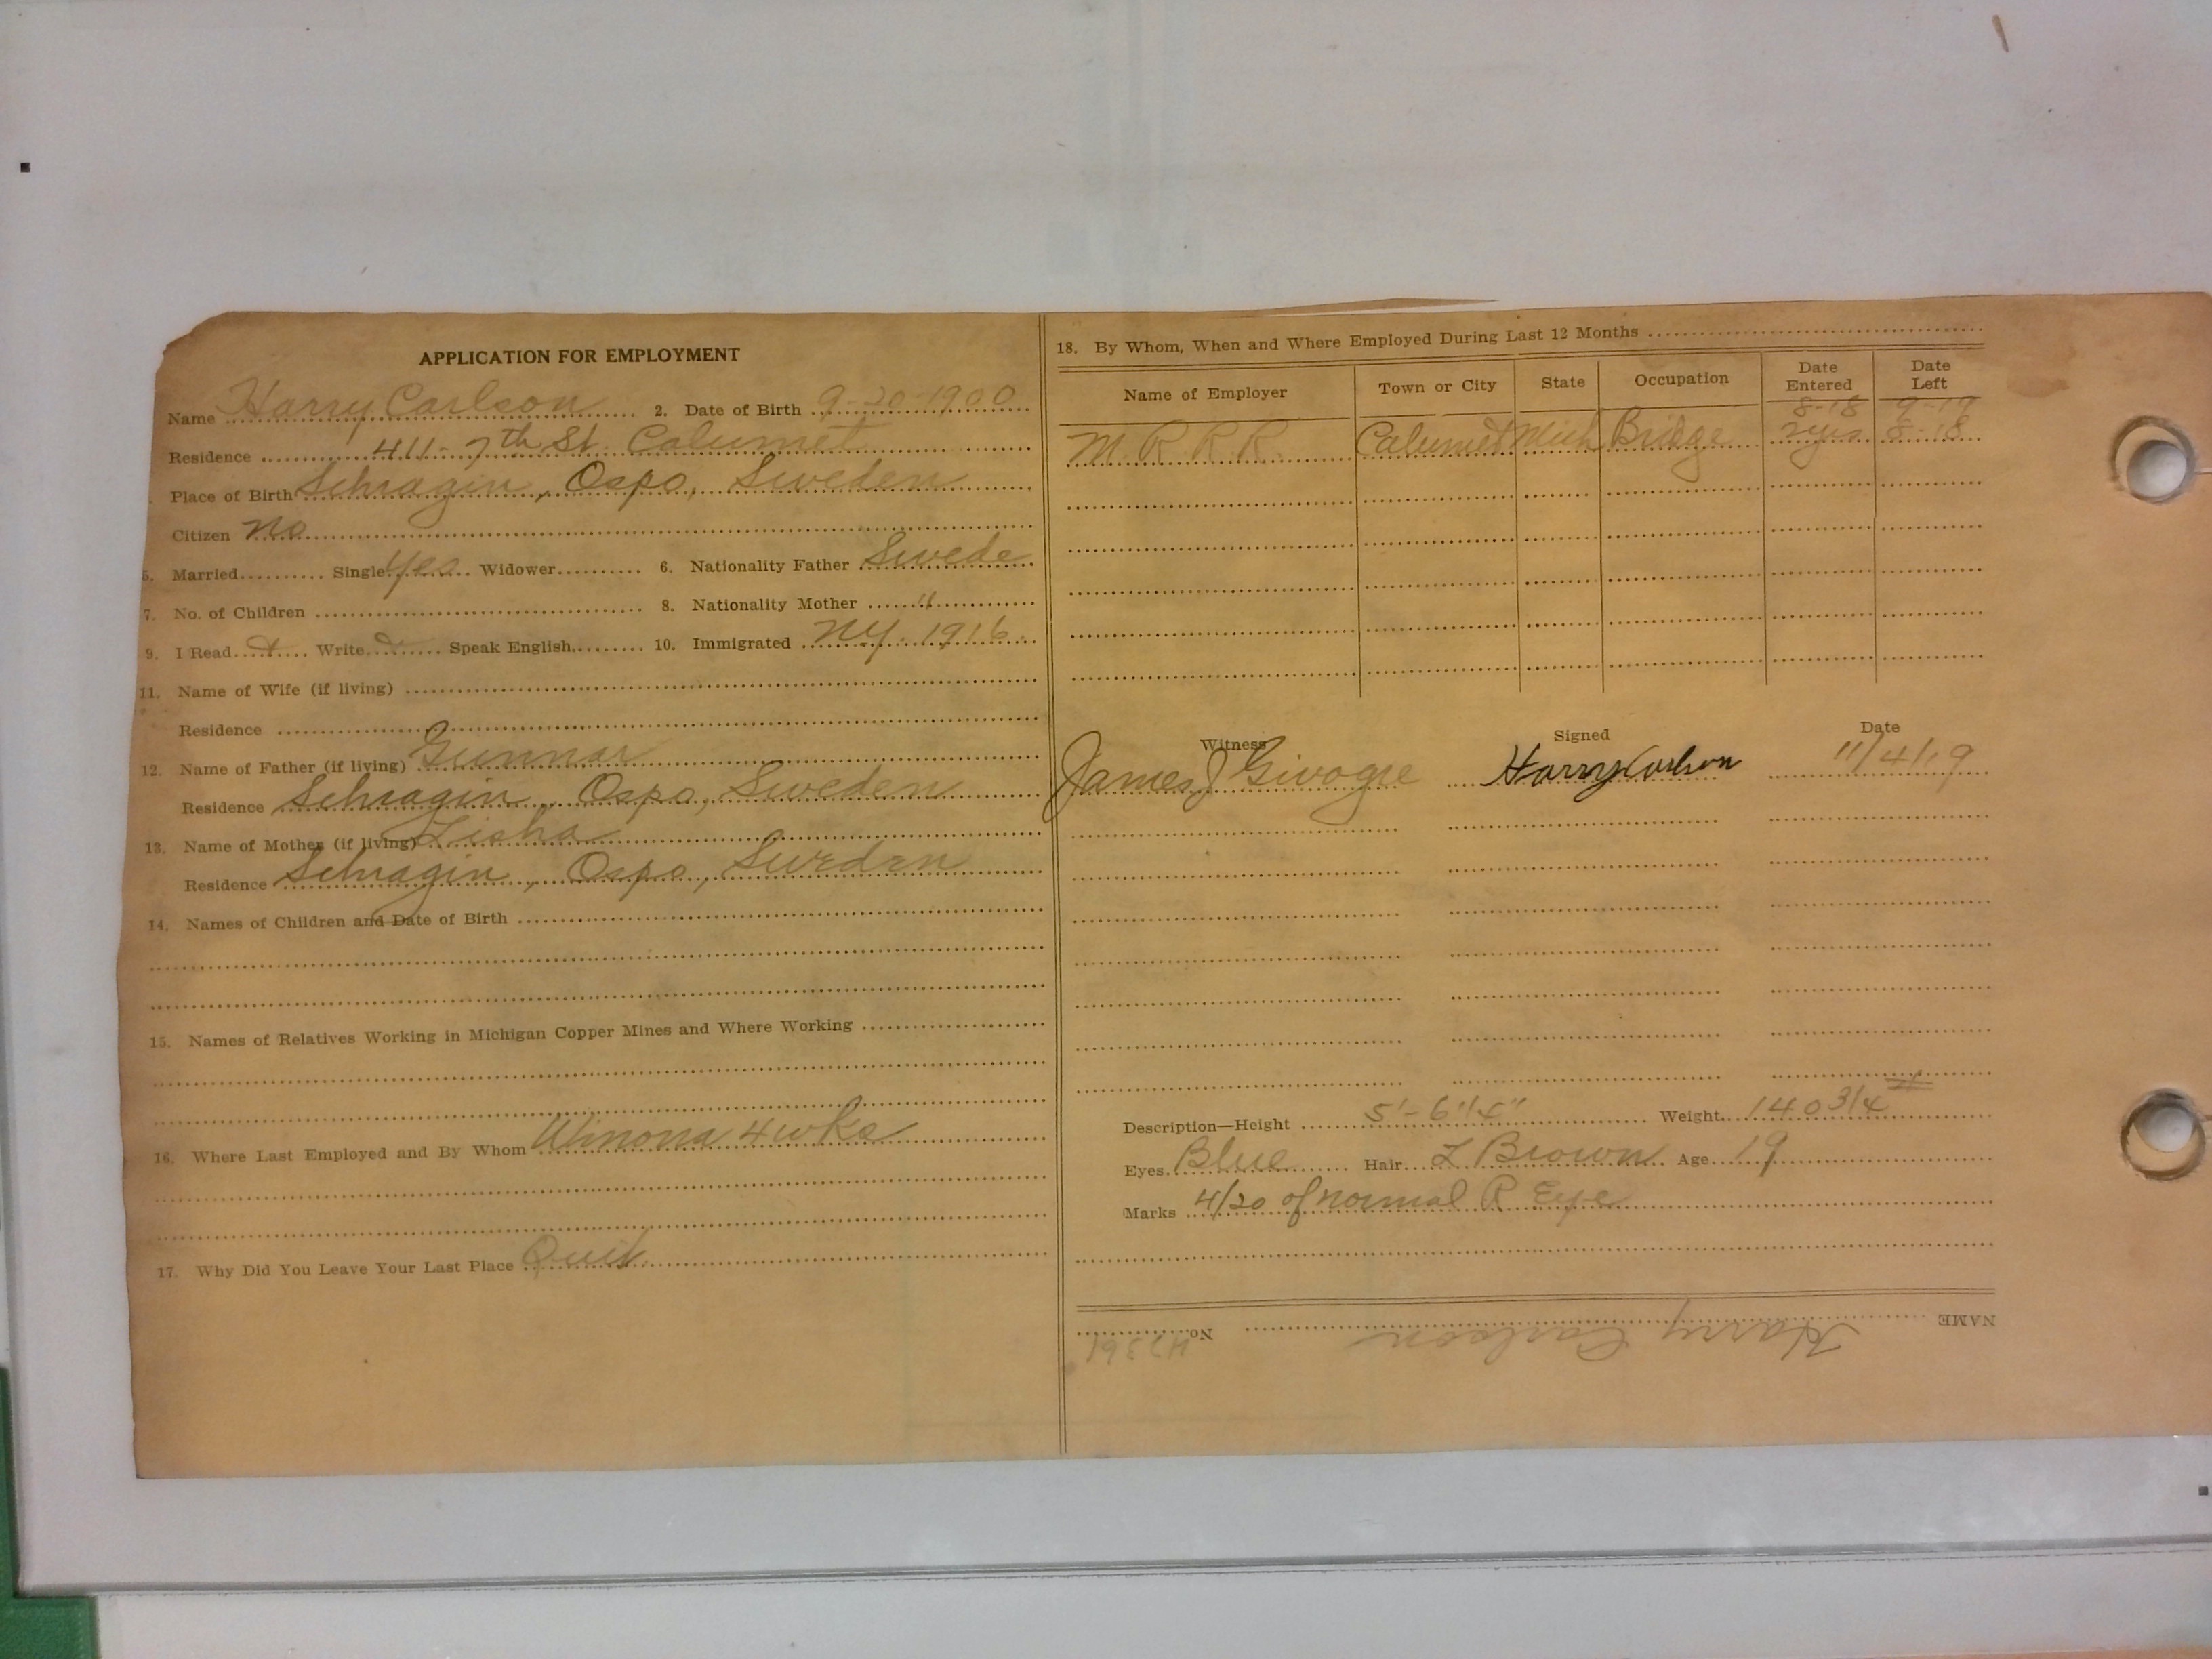 APPLICATION FOR EMPLOYMENT
Name Harry Carlson 2. Date of Birth 9-20-1900
Residence 411-7th St. Calumet
Place of Birth Schragin, Ospo, Sweden
Citizen No
5. Married Single Yes Widower 6. Nationality Father Swede
7. No. of Children 8. Nationality Mother "
9. I Read Write Speak English 10. Immigrated NY. 1916
11. Name of Wife (if living)
Residence
12. Name of Father (if living) Gunnar
Residence Schragin, Ospo, Sweden
13. Name of Mother (if living)
Residence Schragin, Ospo, Sweden
14. Names of Children and Date of Birth
15. Names of Relatives Working in Michigan Copper Mines and Where Working
16. Where Last Employed and By Whom Winona 4 wks
17. Why Did You Leave Your Last Place Quit
18. By Whom, When and Where Employed During Last 12 Months
Name of Employer Town or City State Occupation Date Entered Date Left
8-18 9-19
M. R. R. R. Calumet Mich Bridge 2 yrs 8-18
Witness Signed Date
James J Harry Carlson 11/4/19
Description—Height 5'-6 1/4" Weight 140 3/4 #
Eyes Blue Hair L Brown Age 19
Marks 4/20 of normal R Eye
NAME Harry Carlson No.